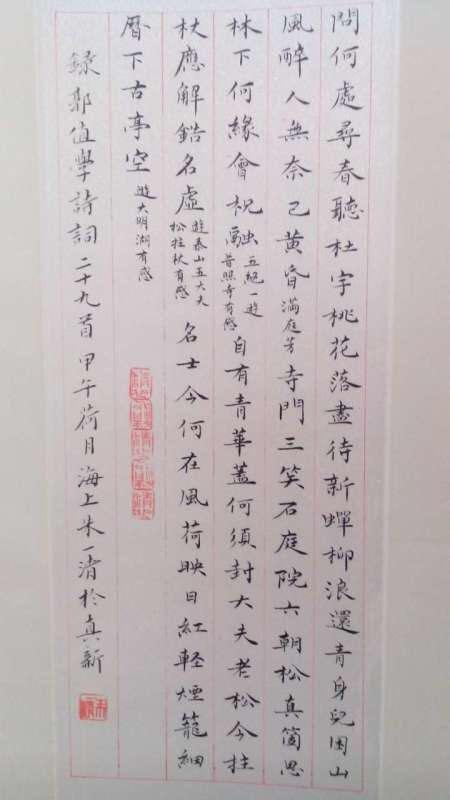 問何處尋春聽杜宇桃花落盡待新蟬柳浪還青身兒困山
風醉人無奈已黃昏滿庭芳寺門三笑石庭院六朝松真箇思
林下何緣會祝融五絕一遊普照寺有感自有青華蓋何須封大夫老松今拄
杖應解鋯名虛遊泰山五大夫松拄杖有感名士今何在風荷映日紅輕煙籠細
曆下古亭空遊大明湖有感
錄郭值學詩詞二十九首甲午荷月海上朱一清於真新